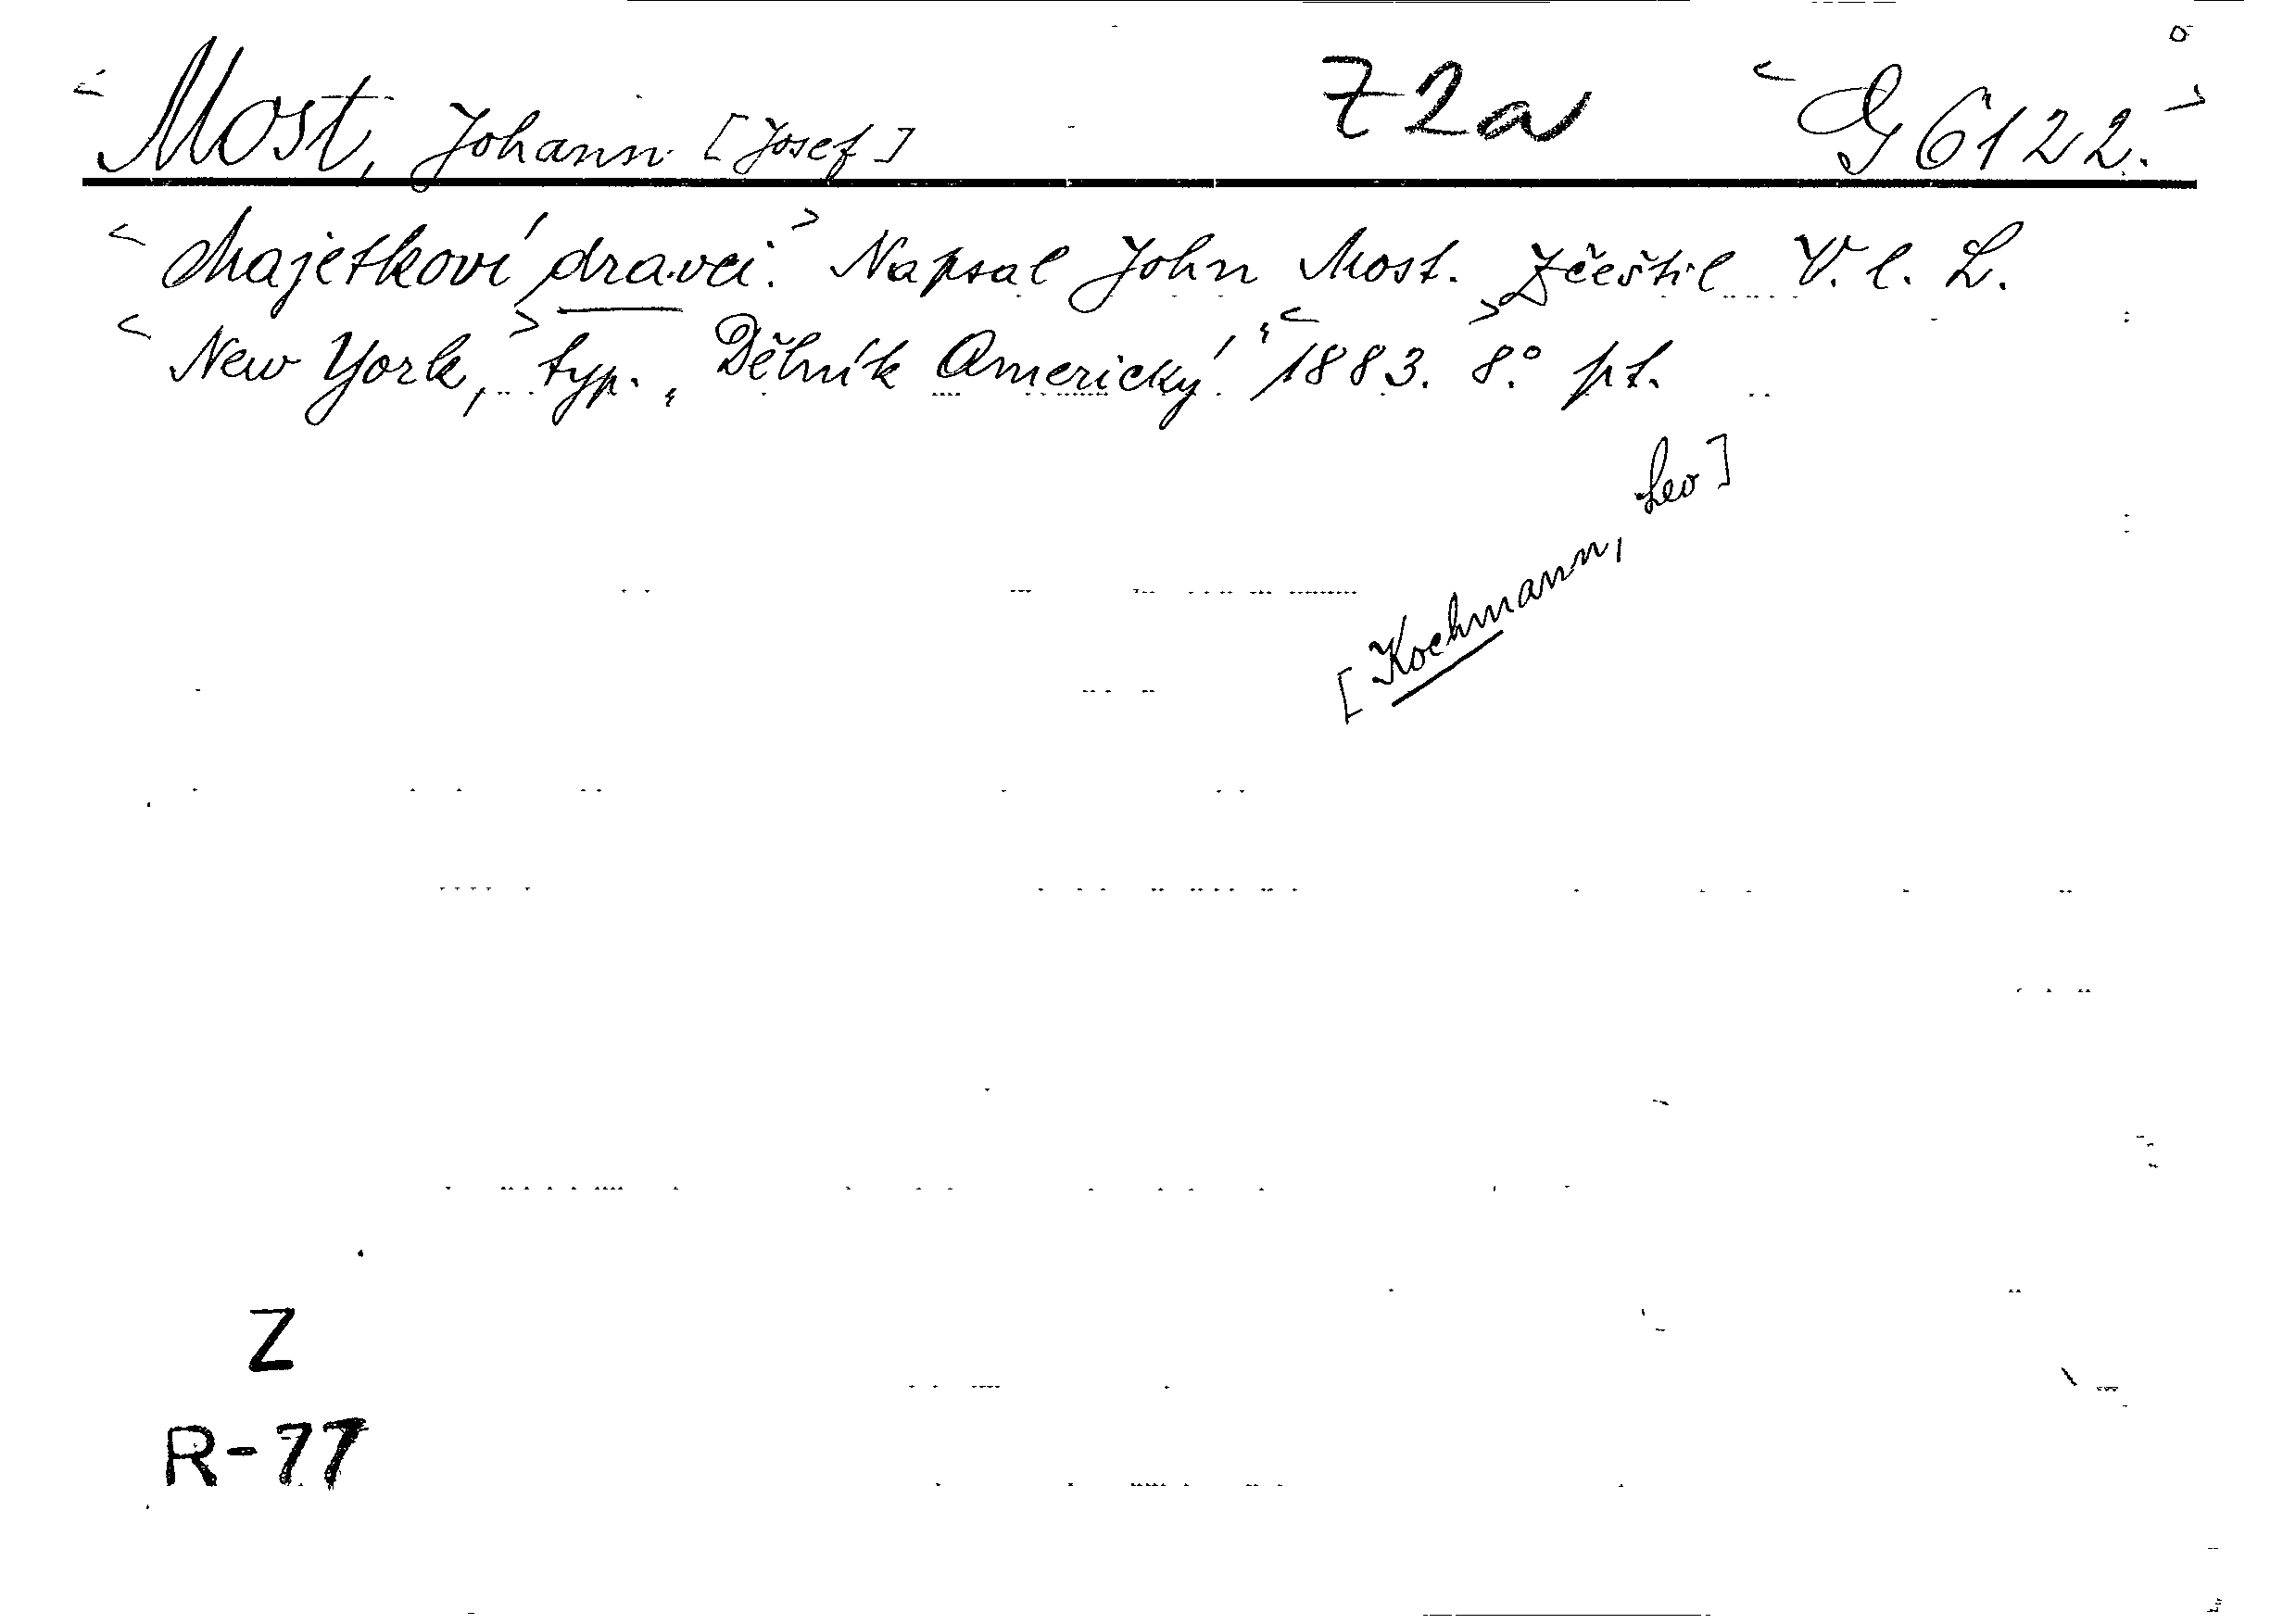 Most, Johann [Josef] Z2a <G 6122.>
<Majetkoví dravci.> Napsal John Most. Zčeštil V. l. L.
<New York,> typ. „Dělník Americký.“ <1883.> 8.° pt.
[Kochmann, Leo]
Z
R-77